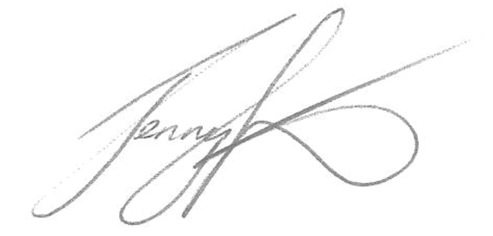 Jenny K